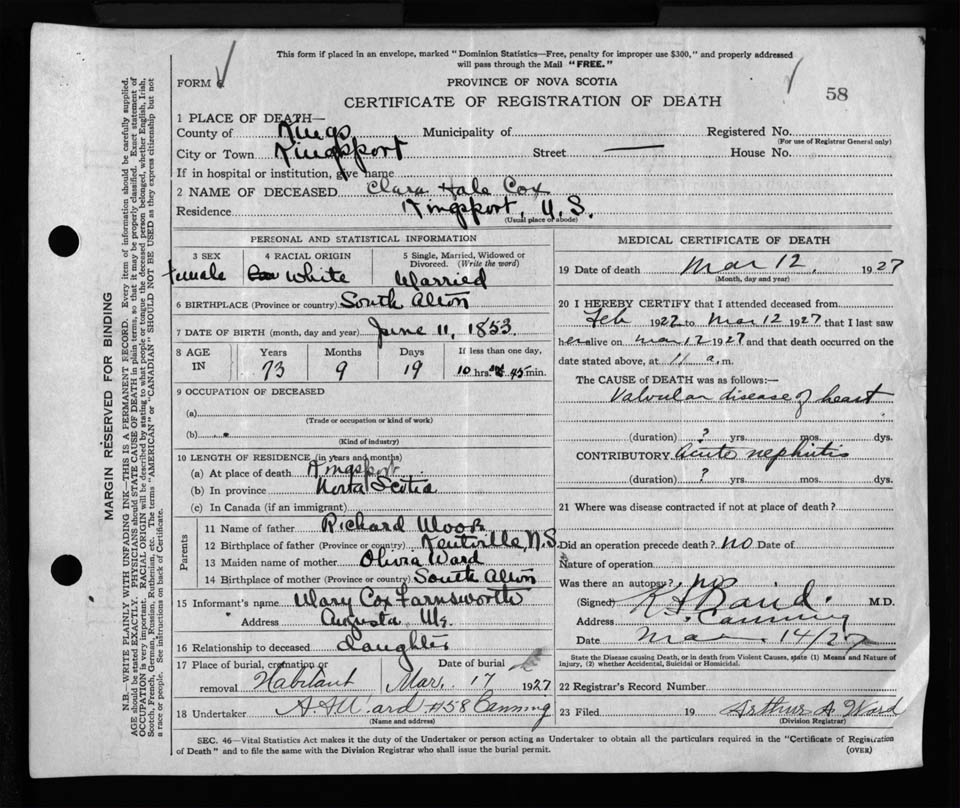 This form if placed in an envelope, marked "Dominion Statistics—Free, penalty for improper use $300," and properly addressed
will pass through the Mail "FREE."
FORM 6
PROVINCE OF NOVA SCOTIA
58
CERTIFICATE OF REGISTRATION OF DEATH
1 PLACE OF DEATH—
County of Kings Municipality of Registered No.
(For use of Registrar General only)
City or Town Kingsport Street — House No.
If in hospital or institution, give name
2 NAME OF DECEASED Clara Hale Cox
Residence Kingsport, N.S.
(Usual place of abode)
PERSONAL AND STATISTICAL INFORMATION
3 SEX 4 RACIAL ORIGIN 5 Single, Married, Widowed or Divorced. (Write the word)
Female White Married
6 BIRTHPLACE (Province or country) South Alton
7 DATE OF BIRTH (month, day and year) June 11, 1853.
8 AGE IN Years Months Days If less than one day,
73 9 19 10 hrs. 45 min.
9 OCCUPATION OF DECEASED
(a)
(Trade or occupation or kind of work)
(b)
(Kind of industry)
10 LENGTH OF RESIDENCE (in years and months)
(a) At place of death Kingsport
(b) In province Norta Scotia
(c) In Canada (if an immigrant)
Parents
11 Name of father Richard
12 Birthplace of father (Province or country) Kentville, N.S.
13 Maiden name of mother Olivia Ward
14 Birthplace of mother (Province or country) South Alton
15 Informant's name Mary Cox Farnsworth
" Address Augusta, Me.
16 Relationship to deceased daughter
17 Place of burial, cremation or removal Habitant Date of burial Mar. 17 1927
18 Undertaker A.A. Ward #58 Canning
(Name and address)
MEDICAL CERTIFICATE OF DEATH
19 Date of death Mar 12, 1927
(Month, day and year)
20 I HEREBY CERTIFY that I attended deceased from
Feb 1927 to Mar 12 1927 that I last saw
her alive on Mar 12 1927 and that death occurred on the
date stated above, at 11 a. m.
The CAUSE of DEATH was as follows:—
Valvular disease of heart
(duration) ? yrs. mos. dys.
CONTRIBUTORY Acute nephritis
(duration) ? yrs. mos. dys.
21 Where was disease contracted if not at place of death?
Did an operation precede death? no Date of
Nature of operation
Was there an autopsy? no
(Signed) M.D.
Address Canning
Date Mar 14/27
State the Disease causing Death, or in death from Violent Causes, state (1) Means and Nature of
Injury, (2) whether Accidental, Suicidal or Homicidal.
22 Registrar's Record Number
23 Filed 19 Arthur A. Ward
(Division Registrar)
SEC. 46—Vital Statistics Act makes it the duty of the Undertaker or person acting as Undertaker to obtain all the particulars required in the "Certificate of Registration
of Death" and to file the same with the Division Registrar who shall issue the burial permit.
(OVER)
MARGIN RESERVED FOR BINDING
N.B.—WRITE PLAINLY WITH UNFADING INK—THIS IS A PERMANENT RECORD. Every item of information should be carefully supplied.
AGE should be stated EXACTLY. PHYSICIANS should STATE CAUSE OF DEATH in plain terms, so that it may be properly classified. Exact statement of
OCCUPATION is very important. RACIAL ORIGIN will be described by stating to what people or tongue the deceased person belonged, whether English, Irish,
Scotch, French, German, Russian, Ruthenian, etc. The terms "AMERICAN" or "CANADIAN" SHOULD NOT BE USED as they express citizenship but not
a race or people. See instructions on back of Certificate.